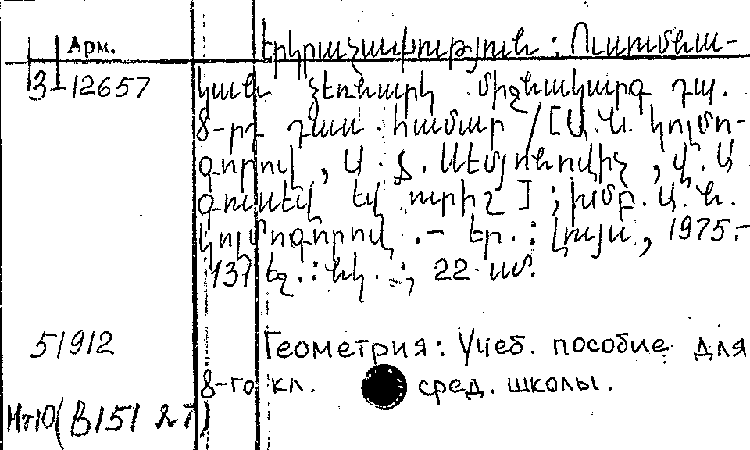 Арм. Երկրաչափություն: Ուսումնա-
3-12657 կան ձեռնարկ միջնակարգ դպ.
8-րդ դաս. համար /[Ա.Ն. Կոլմո-
գորով, Ա.Ֆ. Սեմյոնովիչ, Վ.Ա.
Գուսև եվ ուրիշ]; խմբ. Ա.Ն.
Կոլմոգորով. - Եր.: Լույս, 1975.-
137 էջ.: նկ.; 22 սմ.
51912 Геометрия: Учеб. пособие для
8-го кл. сред. школы.
НтЮ (В151 27)